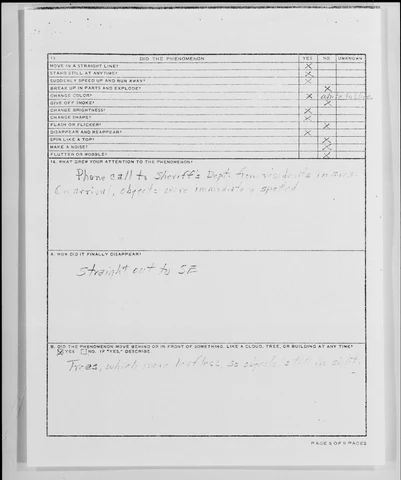 15. DID THE PHENOMENON YES NO UNKNOWN
MOVE IN A STRAIGHT LINE? X
STAND STILL AT ANYTIME? X
SUDDENLY SPEED UP AND RUN AWAY? X
BREAK UP IN PARTS AND EXPLODE? X
CHANGE COLOR? X white to blue
GIVE OFF SMOKE? X
CHANGE BRIGHTNESS? X
CHANGE SHAPE? X
FLASH OR FLICKER? X
DISAPPEAR AND REAPPEAR? X
SPIN LIKE A TOP? X
MAKE A NOISE? X
FLUTTER OR WOBBLE? X
16. WHAT DREW YOUR ATTENTION TO THE PHENOMENON?
Phone call to Sheriff's Dept. from residents in area.
On arrival, objects were immediately spotted
A. HOW DID IT FINALLY DISAPPEAR?
Straight out to SE
B. DID THE PHENOMENON MOVE BEHIND OR IN FRONT OF SOMETHING, LIKE A CLOUD, TREE, OR BUILDING AT ANY TIME?
X YES NO. IF "YES," DESCRIBE.
Trees, which were leafless, so objects still in sight.
PAGE 5 OF 9 PAGES